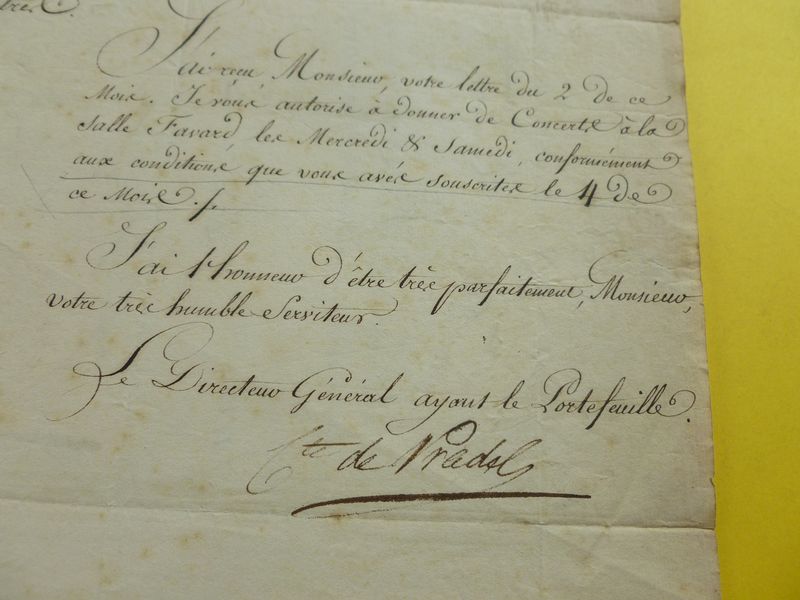 J'ai reçu Monsieur, votre lettre du 2 de ce
Mois. Je vous autorise à donner de Concerts à la
Salle Favard les Mercredi & Samedi, conformément
aux conditions que vous avés souscrites le 4 de
ce Mois ./.
J'ai l'honneur d'être très parfaitement, Monsieur,
votre très humble Serviteur.
Le Directeur Général ayant le Portefeuille.
Cte de Pradel